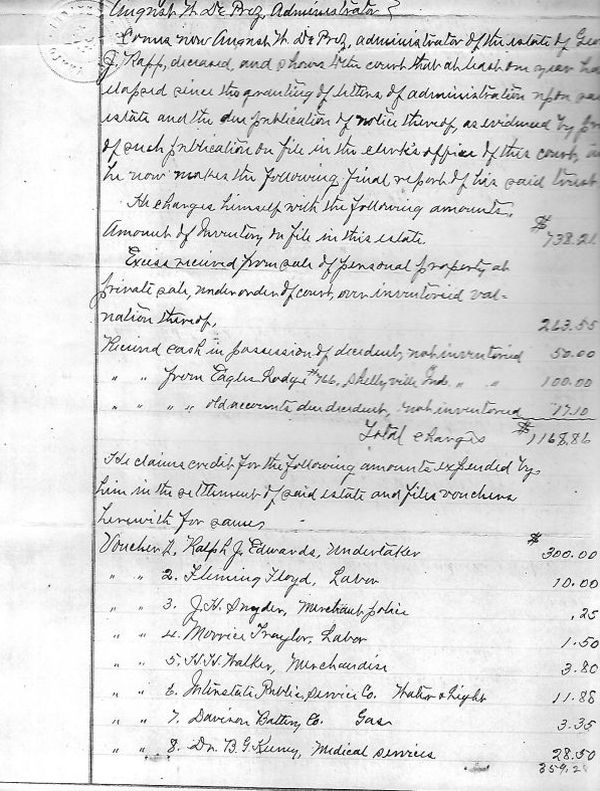 August W. De Prez, Administrator }
Comes now August W. De Prez, administrator of the estate of Geo
J. Kapp, deceased, and shows to the court that at least one year has
elapsed since the granting of letters of administration upon said
estate and the due publication of notice thereof, as evidenced by
of such publication on file in the clerk's office of this court,
he now makes the following final report of his said trust.
He charges himself with the following amounts.
Amount of Inventory on file in this estate. $738.21
Excess received from sale of personal property at
private sale, under order of court, over inventoried val-
uation thereof, 263.55
Received cash in possession of decedent, not inventoried 50.00
" " from Eagles Lodge #766, Shelbyville Ind. " " 100.00
" " " " old accounts due decedent, not inventoried 17.10
Total charges $1168.86
He claims credit for the following amounts expended by
him in the settlement of said estate and files vouchers
herewith for same,
Voucher 1. Ralph J. Edwards, Undertaker $300.00
" " 2. Fleming Floyd, Labor 10.00
" " 3. J.H. Snyder, Merchant police .25
" " 4. Morrice Traylor, Labor 1.50
" " 5. H.H. Walker, Merchandise 3.80
" " 6. Interstate Public Service Co. Water & Light 11.88
" " 7. Davison Battery Co. Gas 3.35
" " 8. Dr. B.G. Keeney, Medical services 28.50
359.2